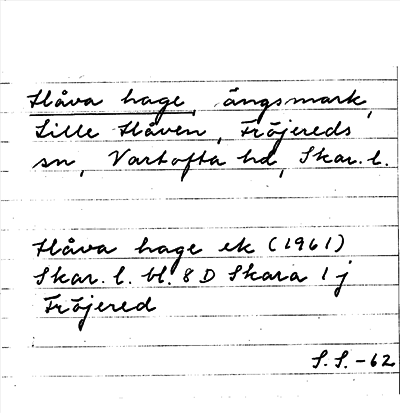 Håva hage, ängsmark,
Lille Håven, Fröjereds
sn, Vartofta hd, Skar. l.
Håva hage ek (1961)
Skar. l. bl. 8 D Skara 1 j
Fröjered
S. S. -62